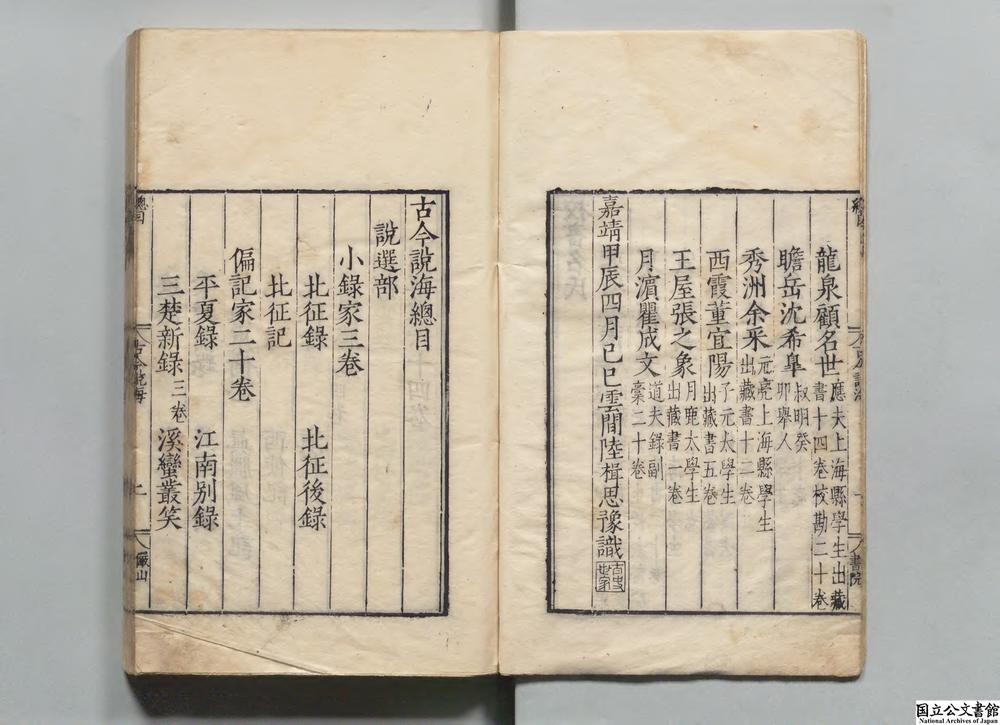 龍泉顧名世應夫上海縣學生出藏書十四卷校勘二十卷
瞻岳沈希皐叔明癸卯舉人
秀洲余采元亮上海縣學生出藏書十二卷
西霞董宜陽子元太學生出藏書五卷
王屋張之象月鹿太學生出藏書一卷
月濵瞿成文道夫録副稾二十卷
嘉靖甲辰四月己巳雲間陸楫思豫識
書院
古今說海總目
說選部
小錄家三卷
北征錄 北征後錄
北征記
偏記家二十卷
平夏錄 江南别錄
三楚新錄三卷 溪蠻叢笑
總目
古今說海
儼山
国立公文書館
National Archives of Japan